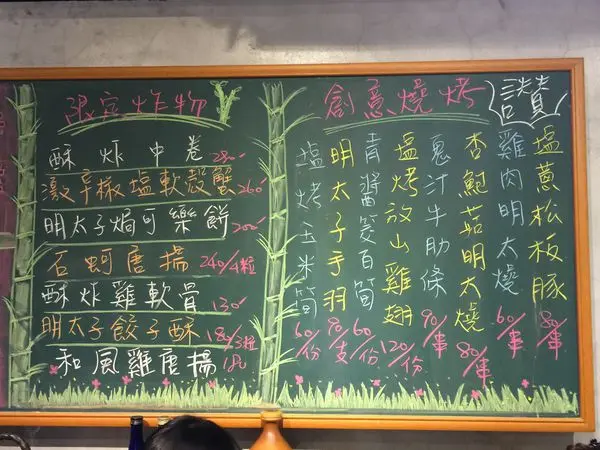 限定炸物
酥炸中卷 280
激辛椒塩軟殼蟹 260
明太子焗可樂餅 200
石蚵唐揚 240/4粒
酥炸雞軟骨 130
明太子餃子酥 180/3粒
和風雞唐揚 180
創意燒烤
讚
塩蔥松板豚 80/串
雞肉明太燒 60/串
杏鮑菇明太燒 80/串
蔥汁牛肋條 90/串
塩烤放山雞翅 120/份
青醬筊白筍 60/份
明太子手羽 70/支
塩烤玉米筍 60/份